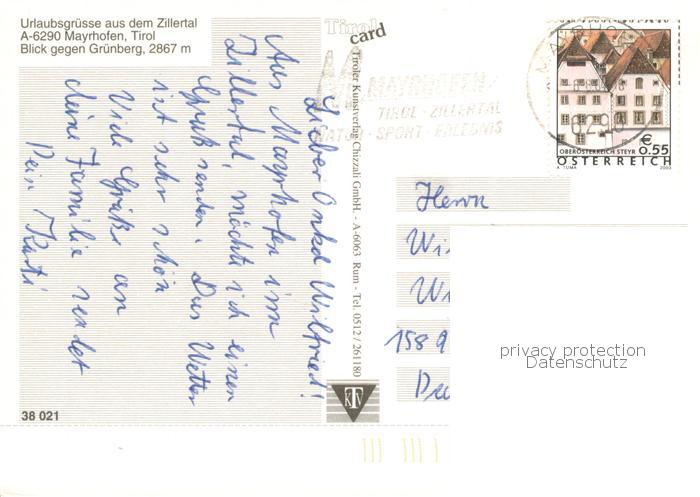 Urlaubsgrüsse aus dem Zillertal
A-6290 Mayrhofen, Tirol
Blick gegen Grünberg, 2867 m
Tirol
card
Tiroler Kunstverlag Chizzali GmbH. - A-6063 Rum - Tel. 0512/261180
MAYRHOFEN
TIROL - ZILLERTAL
NATUR - SPORT - ERLEBNIS
€ 0.55
OBERÖSTERREICH STEYR
ÖSTERREICH
K. TUMA 2003
Lieber Onkel Wilfried!
Aus Mayrhofen im
Zillertal, möchte ich einen
Gruß senden. Das Wetter
ist sehr schön
Viele Grüße an
deine Familie sendet
Dein Kati
Herrn
Wi
Wi
158 9
KTV
38 021
privacy protection
Datenschutz